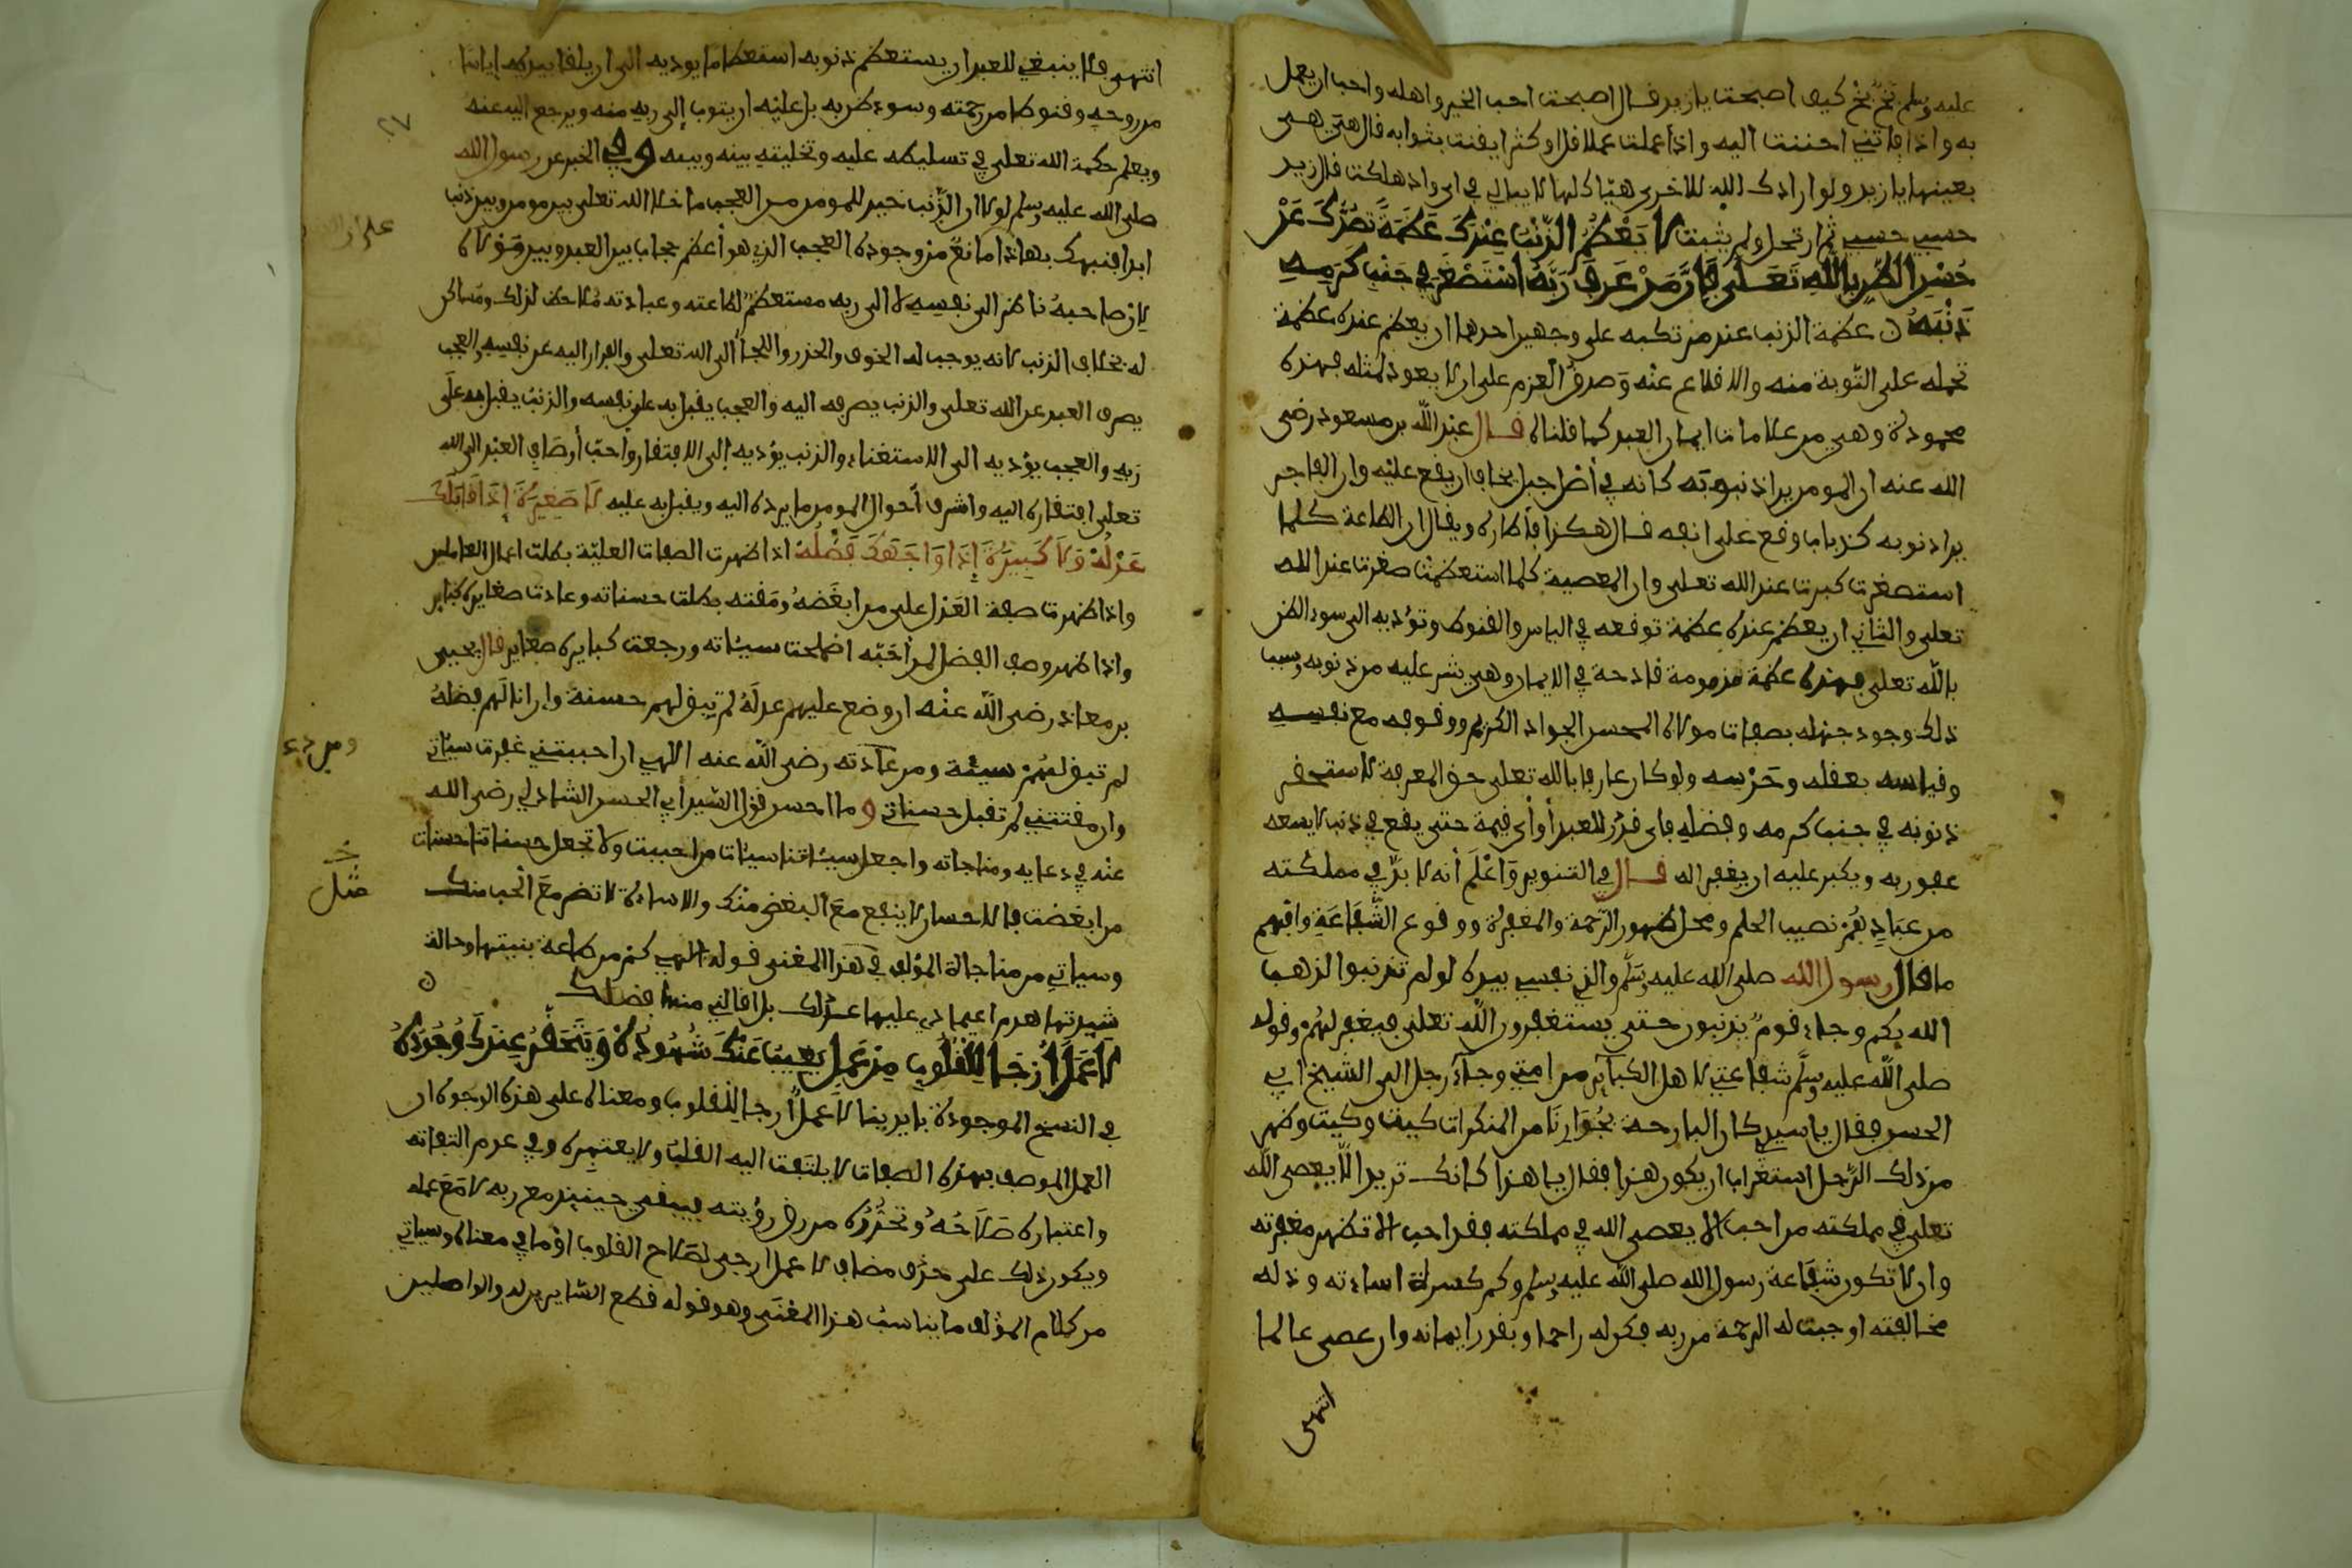 عليه وسلم بخ بخ كيف اصبحت يا زيد قال اصبحت احب الخير واهله واحب ان يعمل
به واذا فاتني احننت اليه واذا عملت عملا قل او كثر ايقنت بثوابه قال هي هي
بعينها يا زيد ولو ارادك الله للاخرى هيأك لها لا يبالي في اي واد هلكت قال زيد
حسبي حسبي ثم ارتحل ولم يثبت لَا يَعْظُمُ الذَّنْبُ عِنْدَكَ عَظَمَةً تَصُدُّكَ عَنْ
حُسْنِ الظَّنِّ بِاللَّهِ تَعَلَى فَإِنَّ مَنْ عَرَفَ رَبَّهُ اسْتَصْغَرَ فِي جَنْبِ كَرَمِهِ
ذَنْبَهُ ن عظمة الذنب عند مرتكبه على وجهين احدهما ان يعظم عنده عظمة
تحمله على التوبة منه والاقلاع عنه وصدق العزم على ان لا يعود لمثله فهذه
محمودة وهي من علامات ايمان العبد كما قلناه قال عبد الله بن مسعود رضي
الله عنه ان المومن يرا ذنوبه كانه في أصل جبل يخاف ان يقع عليه وان الفاجر
يرا ذنوبه كذباب وقع على انفه قال هكذا فأطاره ويقال ان الطاعة كلما
استصغرت كبرت عند الله تعلى وان المعصية كلما استعظمت صغرت عند الله
تعلى والثاني ان يعظم عنده عظمة توقعه في الياس والقنوط وتؤديه الى سوء الظن
بالله تعلى فهذه عظمة مذمومة قادحة في الايمان وهي شر عليه من ذنوبه وسبب
ذلك وجود جهله بصفات مولاه المحسن الجواد الكريم ووقوفه مع نفسه
وقياسه بعقله وحدسه ولو كان عارفا بالله تعلى حق المعرفة لاستحقر
ذنوبه في جنب كرمه وفضله فاى قدر للعبد أو أى قيمة حتى يقع في ذنب لا يسعه
عفو ربه ويكبر عليه ان يغفر له قال في التنوير وَاعْلَم أنه لا بدّ في مملكته
من عباد هُمْ نصيب الحلم ومحل ظهور الرحمة والمغفرة ووقوع الشَّفَاعَة وافهم
ما قال رسول الله صلى الله عليه وسلم والذي نفسي بيده لو لم تذنبوا لذهب
الله بكم وجاء قوم يذنبون حتى يستغفرون الله تعلى فيغفر لهم وقوله
صلى الله عليه وسلم شفاعتي لاهل الكبآير من امتي وجآء رجل الى الشيخ ابي
الحسن فقال يا سيدي كان البارحة بجُوَارِنَا من المنكرات كيت وكيت وظهر
من ذلك الرجل استغراب ان يكون هذا فقال يا هذا كانك تريد الّا يعصى الله
تعلى في مملكته من احب الا يعصى الله في مملكته فقد احب الا تظهر مغفرته
وان لا تكون شفاعة رسول الله صلى الله عليه وسلم وكم كسرته اساءته وذله
مخالفته اوجبت له الرحمة من ربه فكن له راحما وبقدر ايمانه وان عصى عالما
انتهى
انتهى فلا ينبغي للعبد ان يستعظم ذنوبه استعظاما يوديه الى ان يلقا بيده إياسا
من روحه وقنوطا من رحمته وسوء ظن به بل عليه ان يتوب إلى ربه منه ويرجع اليه عنه
ويعلم حكمة الله تعلى في تسليطه عليه وتخليته بينه وبينه وفي الخبر عن رسول الله
صلى الله عليه وسلم لولا ان الذنب خير للمومن من العجب ما خلا الله تعلى بين مومن وبين ذنب
ابدا فنبهك بهاذا ما نعّ من وجوده العجب الذي هو أعظم حجاب بين العبد وبين مَوْلاه
لانّ صاحبه ناظر الى نفسه لا الى ربه مستعظم لطاعته وعبادته مُلاحظ لذلك ومساكن
له بخلاف الذنب لانه يوجب له الخوف والحذر واللجأ الى الله تعلى والفرار اليه عن نفسه والعجب
يصرف العبد عن الله تعلى والذنب يصرفه اليه والعجب يقبل به على نفسه والذنب يقبل به على
ربه والعجب يؤديه الى الاستغناء والذنب يؤديه إلى الافتقار وأحبّ أوصَاف العبد الى الله
تعلى افتقاره اليه واشرف أحوال المومن ما يرده اليه ويقبل به عليه لَا صَغِيرَةَ إِذَا قَابَلَكَ
عَدْلُهُ وَلَا كَبِيرَةَ إِذَا وَاجَهَكَ فَضْلُهُ اذا ظهرت الصفات العليّة بطلت اعمال العاملين
واذا ظهرت صفة العَدْل على من ابغَضَهُ ومَقته بطلت حسناته وعادت صغايره كباير
واذا ظهر وصف الفضل لمن أحَبّه اضمحلت سيئاته ورجعت كبايره صغاير قال يحيى
بن معاذ رضى الله عنه ان وضع عليهم عدلَهُ لم تبق لهم حسنة وإن انالهم فضلهُ
لم تبق لهُمْ سيئة ومن عادته رضى الله عنه الهي ان احببتني غفرت سيئاتي
وان مقتتني لم تقبل حسناتي و ما احسن قول الشيخ أبي الحسن الشاذلي رضى الله
عنه في دعايه ومناجاته واجعل سيئاتنا سيئات من احببت ولا تجعل حسناتنا حسنات
من ابغضت فالاحسان لا ينفع معَ البغض منك والاساءة لا تضر معَ الحب منك
وسياتي من مناجاة المؤلف في هذا المعنى قوله الهي كم من طاعة بنيتها وحالة
شيدتها هدم اعتمادي عليها عدلك بل اقالني منها فضلك
لَا عَمَلَ أَرْجَا لِلْقُلُوبِ مِنْ عَمَلٍ يَغِيبُ عَنْكَ شُهُودُهُ وَيَحْتَقَرُ عِنْدَكَ وُجُودُهُ
في النسخ الموجودة بايدينا لا عمل أرجا للقلوب ومعناه على هذه الوجوه ان
العمل الموصف بهذه الصفات لا يلتفت اليه القلب ولا يعتمده وفي عدم التفاته
واعتباره صَلَاحُهُ وتحَرُّرُه من رق رؤيته فيبقى حينيذ مع ربه لا مَعَ عمله
ويكون ذلك على حذف مضاف لا عمل ارجى لصَلاح القلوب اوْ ما في معناه وسياتي
من كلام المؤلف ما يناسب هذا المعنى وهو قوله قطع السّايرين له والواصلين